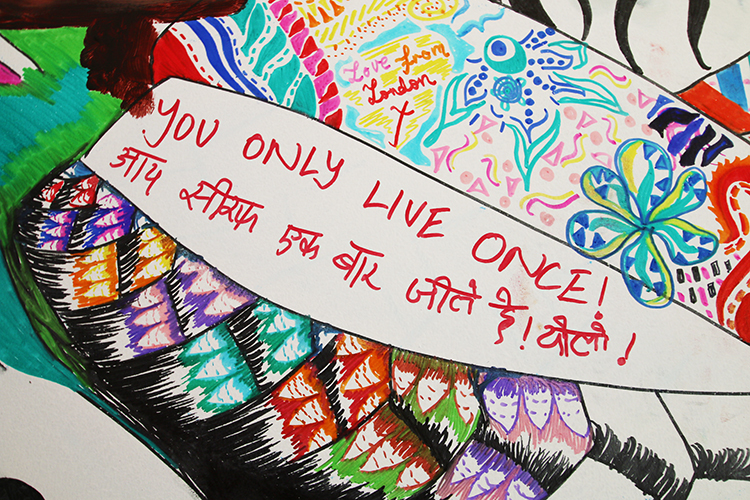 Love from
London
x
YOU ONLY LIVE ONCE!
आप सीरफ एक बार जीते है! योलो!